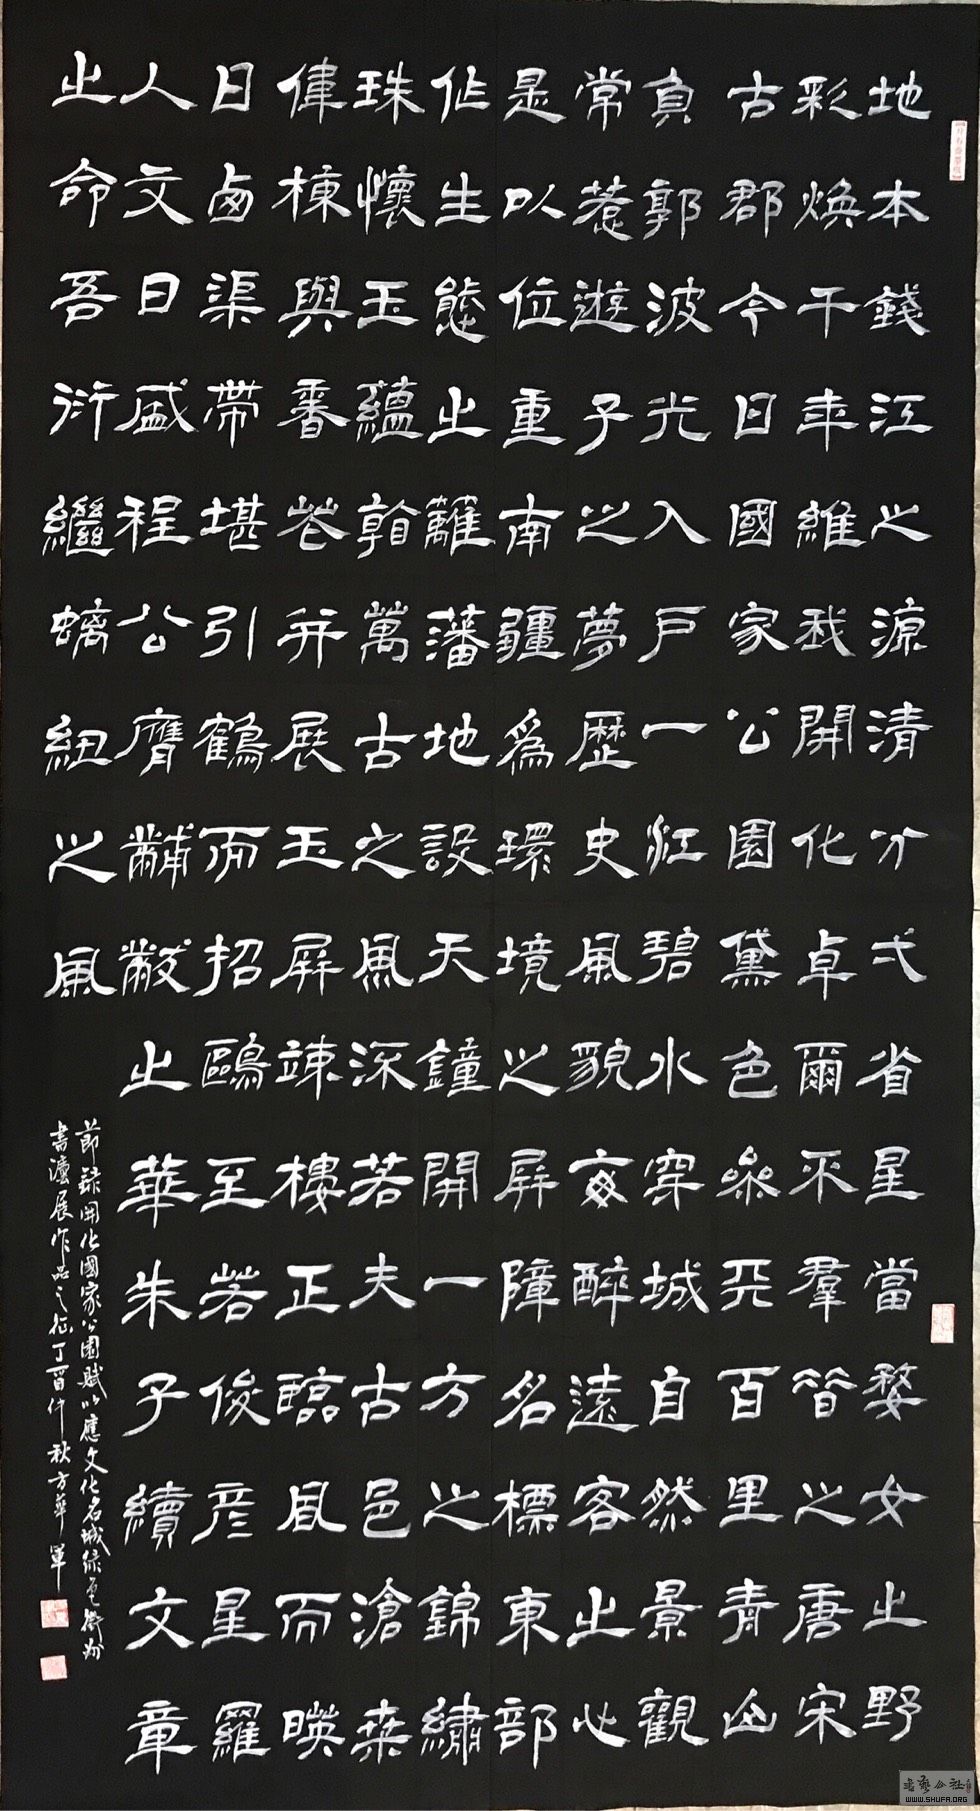 地本錢江之源清分弌省星當婺女止野
彩煥千年維我開化卓爾不羣晉之唐宋
古郡今日國家公園黛色參天百里青山
負郭波光入戶一江碧水穿城自然景觀
常惹遊子之夢歷史風貌每醉遠客止心
是以位重南疆爲環境之屏障名標東部
作生態止籬藩地設天鐘開一方之錦繡
珠懷玉蘊翰萬古之風深若夫古邑滄桑
偉棟與春花并展玉屏竦樓正臨風而映
日凾渠帶堪引鶴而招鷗至若俊彥星羅
人文日盛程公膺黼黻止華朱子續文章
止命吾衍繼紐之風
節錄開化國家公園賦以應文化名城綠色衢州
書灋展作品之徵丁酉仲秋方華軍
书艺公社
WWW.SHUFA.ORG